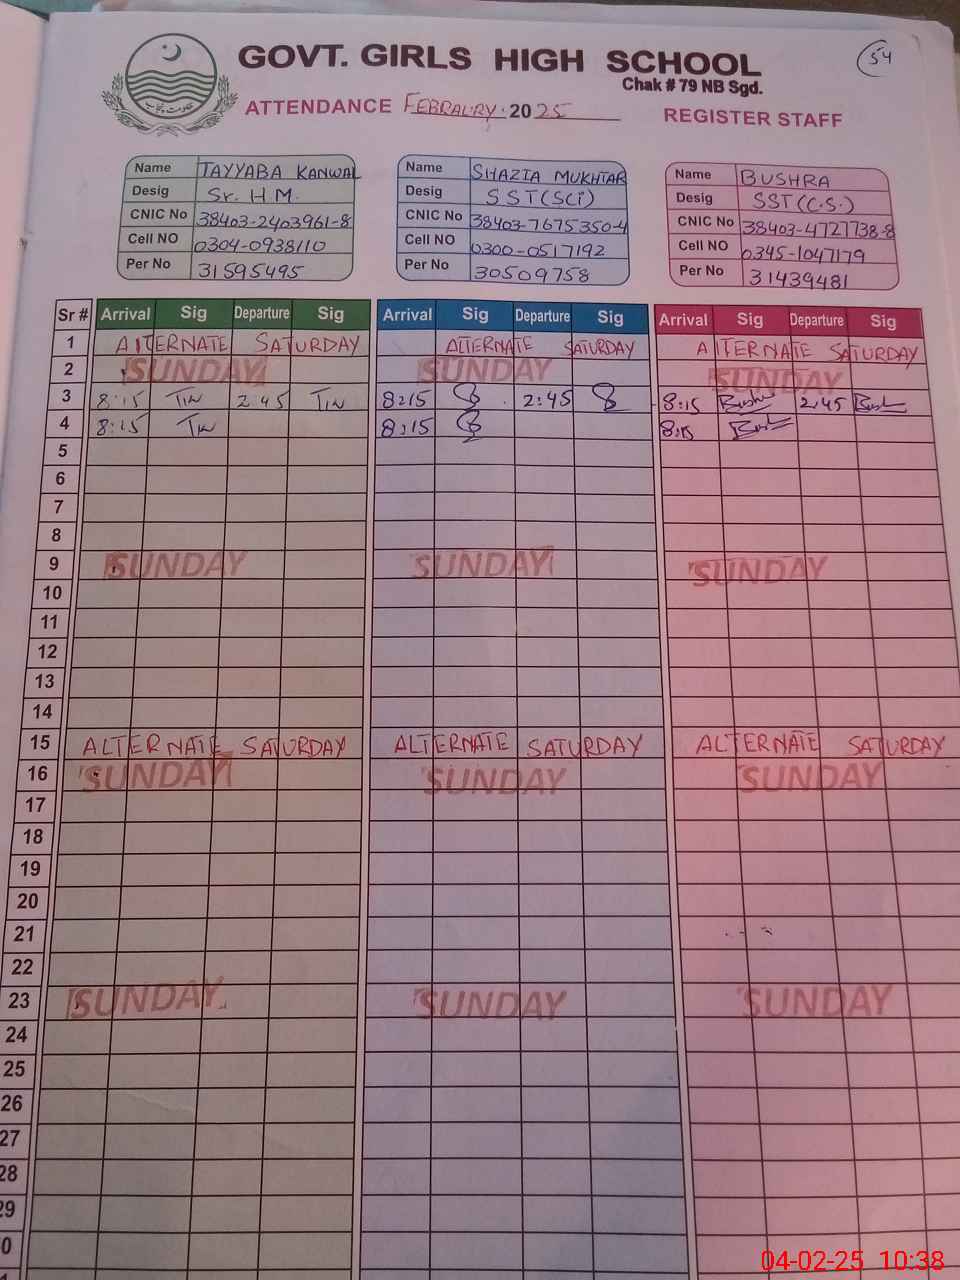 GOVT. GIRLS HIGH SCHOOL
54
Chak # 79 NB Sgd.
ATTENDANCE FEBRAURY. 2025 REGISTER STAFF
Name TAYYABA KANWAL
Desig Sr. H.M.
CNIC No 38403-2403961-8
Cell NO 0304-0938110
Per No 31595495
Name SHAZIA MUKHTAR
Desig SST (SCi)
CNIC No 38403-7675350-4
Cell NO 0300-0517192
Per No 30509758
Name BUSHRA
Desig SST (C.S.)
CNIC No 38403-4727738-8
Cell NO 0345-1047179
Per No 31439481
Sr # Arrival Sig Departure Sig Arrival Sig Departure Sig Arrival Sig Departure Sig
1 AlTERNATE SATURDAY ALTERNATE SATURDAY AlTERNATE SATURDAY
2 SUNDAY SUNDAY SUNDAY
3 8:15 2:45 8:15 2:45 8:15 Bush 2:45 Bush
4 8:15 8:15 8:15 Bush
5
6
7
8
9 SUNDAY SUNDAY SUNDAY
10
11
12
13
14
15 ALTERNATE SATURDAY ALTERNATE SATURDAY ALTERNATE SATURDAY
16 SUNDAY SUNDAY SUNDAY
17
18
19
20
21
22
23 SUNDAY SUNDAY SUNDAY
24
25
26
27
28
29
0
04-02-25 10:38